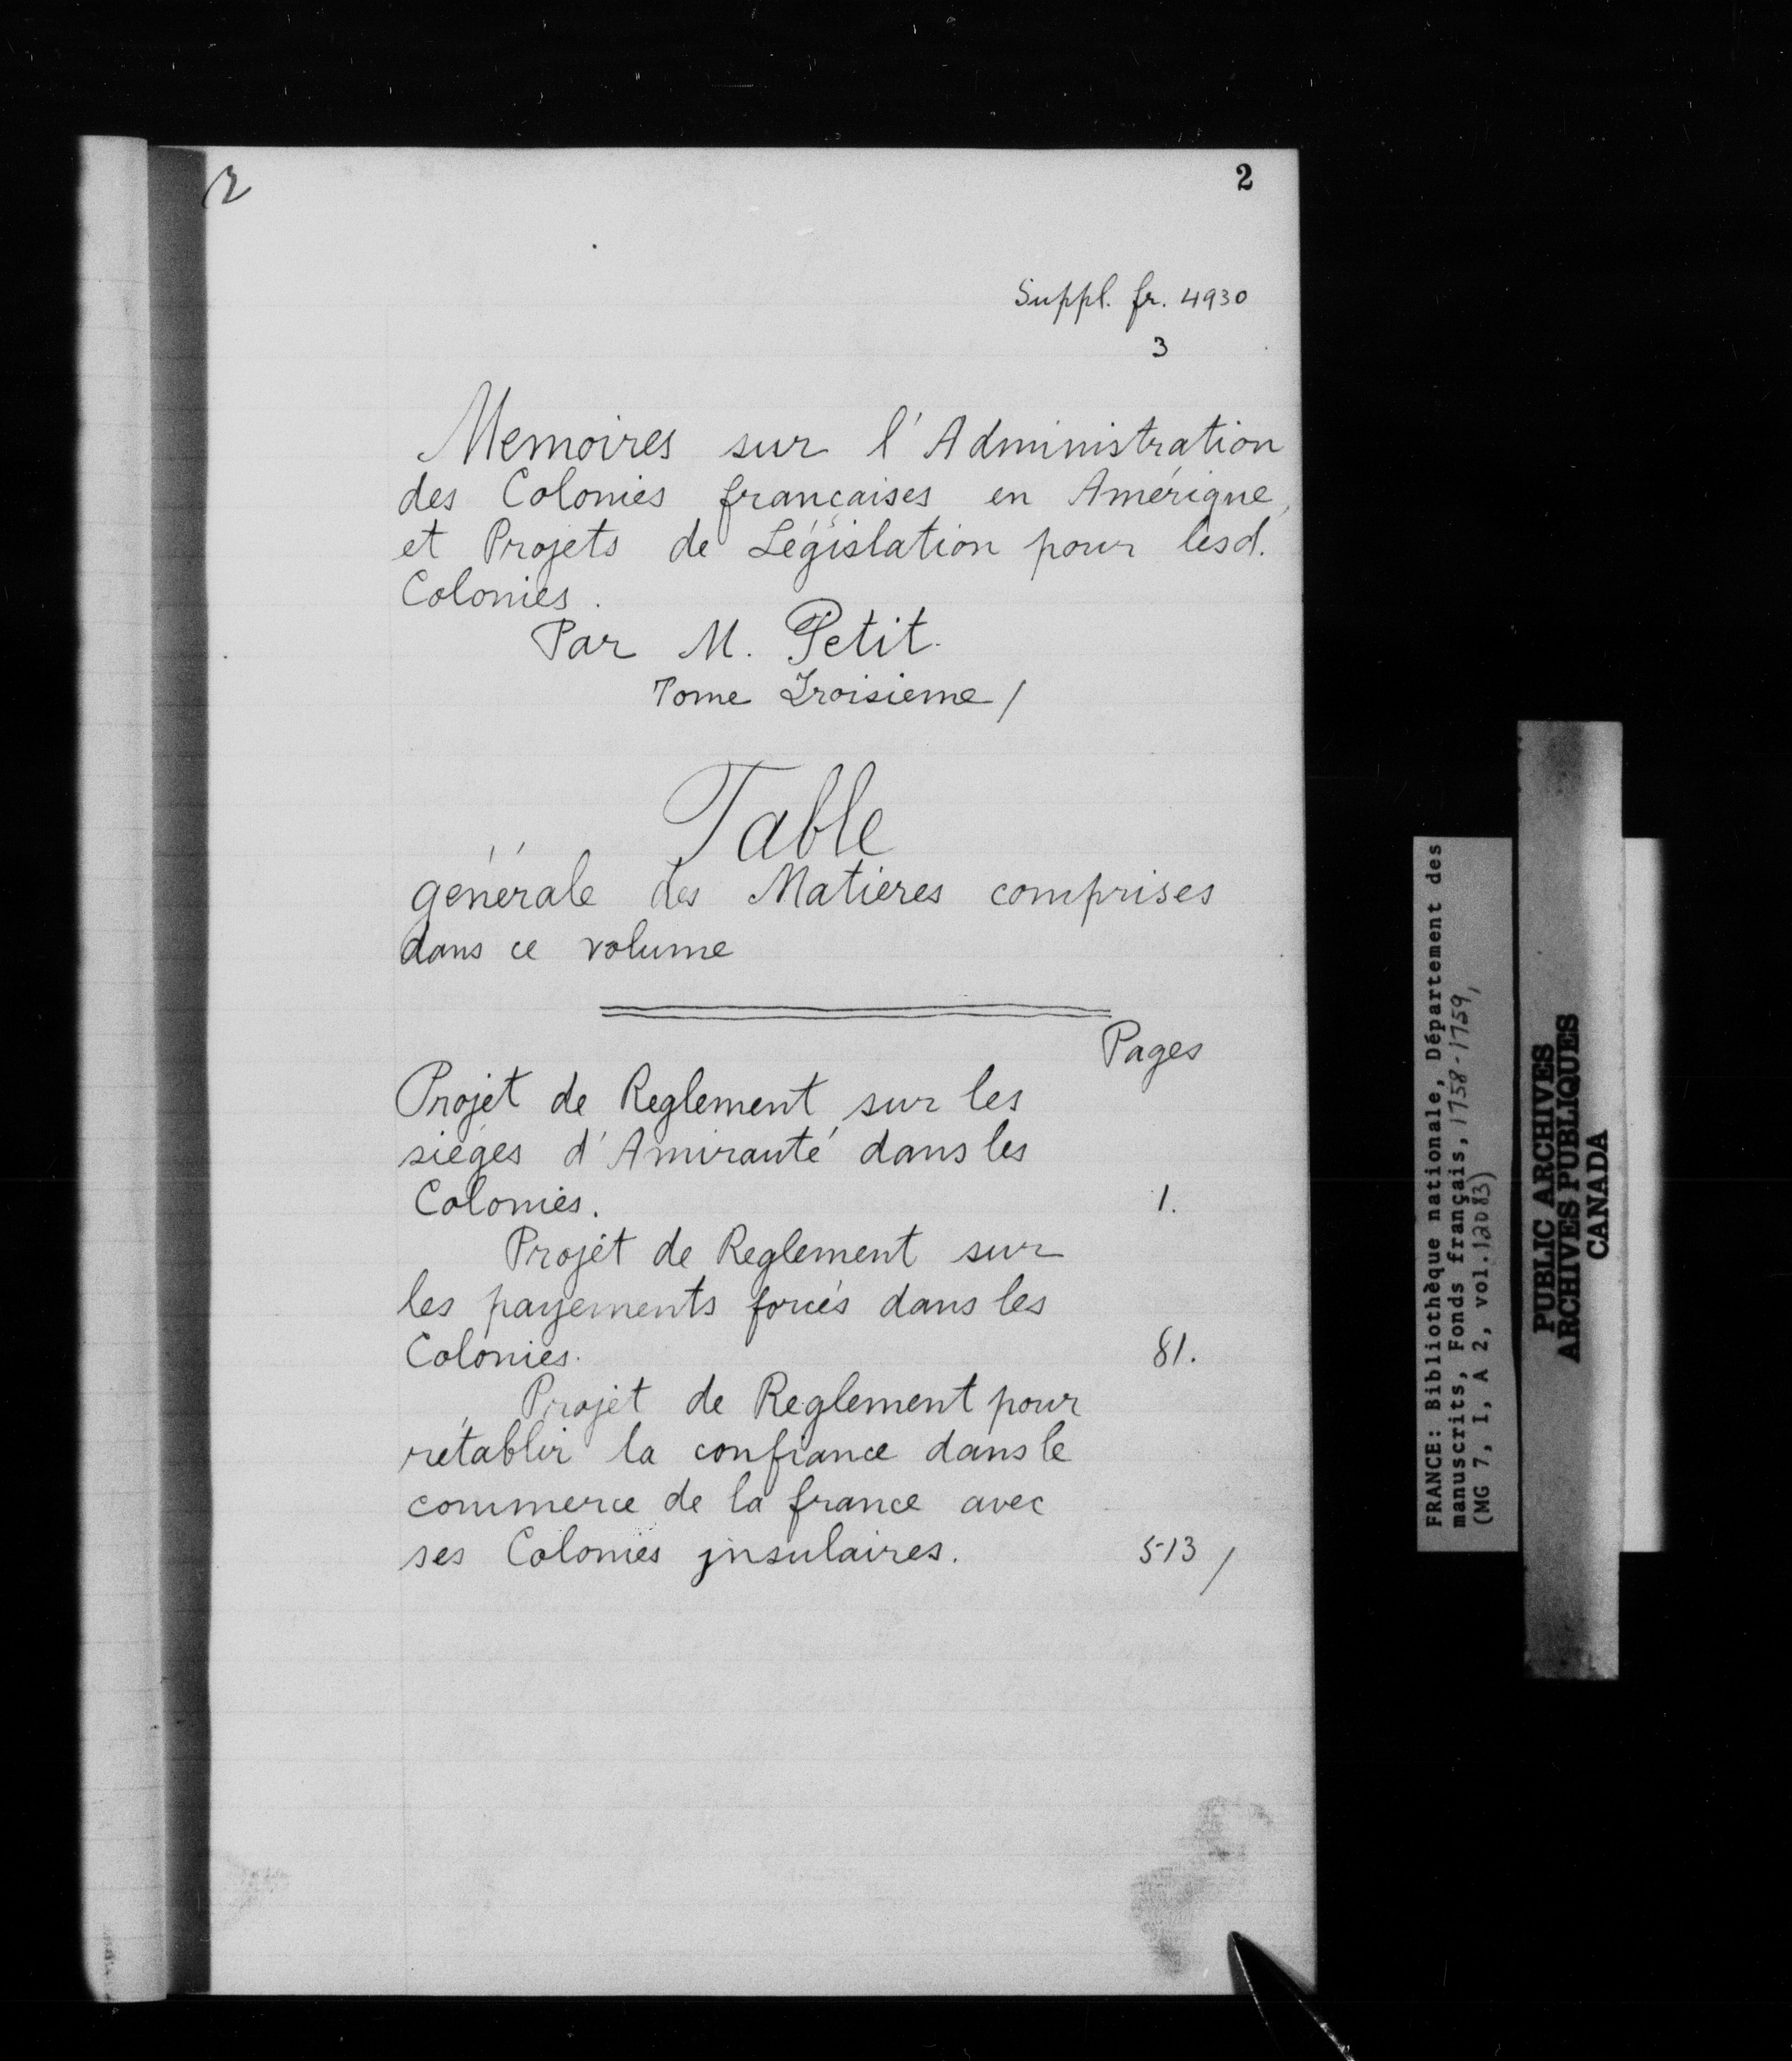 2
2
Suppl. fr. 4930
3
Memoires sur l'Administration
des Colonies françaises en Amérique,
et Projets de Législation pour lesd.
Colonies.
Par M. Petit.
Tome Troisieme /
Table
générale des Matieres comprises
dans ce volume
Pages
Projet de Reglement sur les
siéges d'Amirauté dans les
Colonies. 1.
Projet de Reglement sur
les payements forcés dans les
Colonies. 81.
Projet de Reglement pour
rétablir la confiance dans le
commerce de la france avec
ses Colonies jnsulaires. 513 /
FRANCE: Bibliothèque nationale, Département des
manuscrits, Fonds français, 1758-1759,
(MG 7, I, A 2, vol. 12083)
PUBLIC ARCHIVES
ARCHIVES PUBLIQUES
CANADA